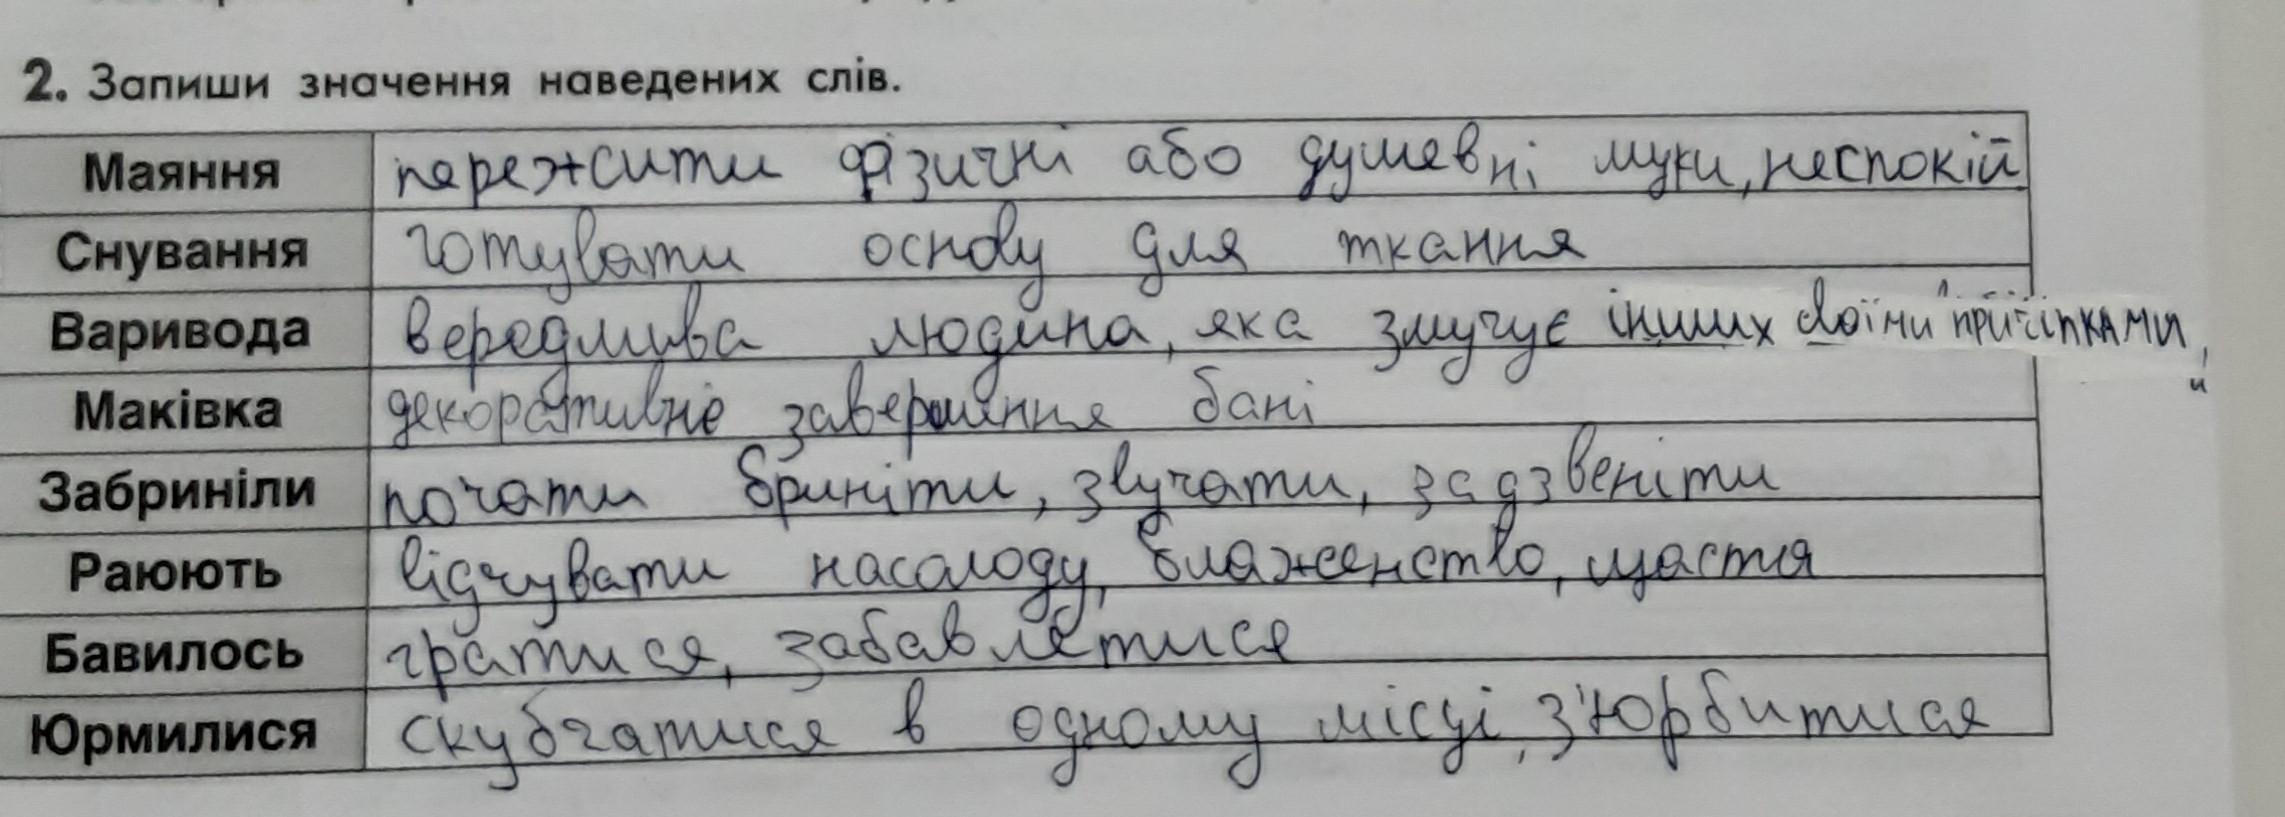 2. Запиши значення наведених слів.
Маяння пережити фізичні або душевні муки, неспокій
Снування готувати основу для ткання
Варивода вередлива людина, яка змучує інших своїми причіпками,
Маківка декоративне завершення бані
Забриніли почати бриніти, звучати, задзвеніти
Раюють відчувати насолоду, блаженство, щастя
Бавилось гратися, забавлятися
Юрмилися скубчатися в одному місці, з'юрбитися